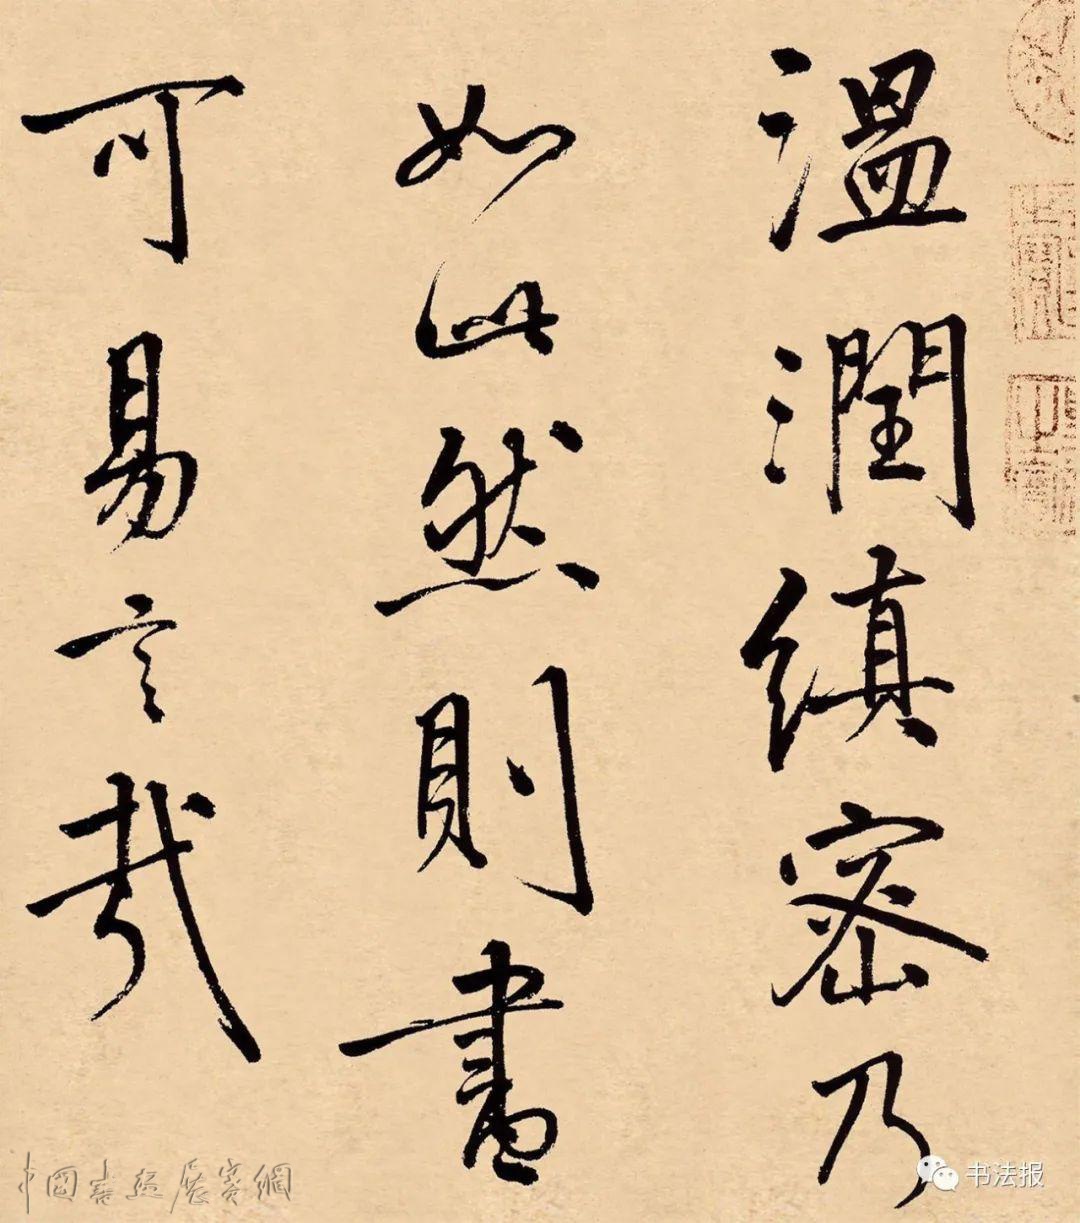 溫潤縝密乃
如此然則畫
可易言哉
中國書畫展賽網
书法报